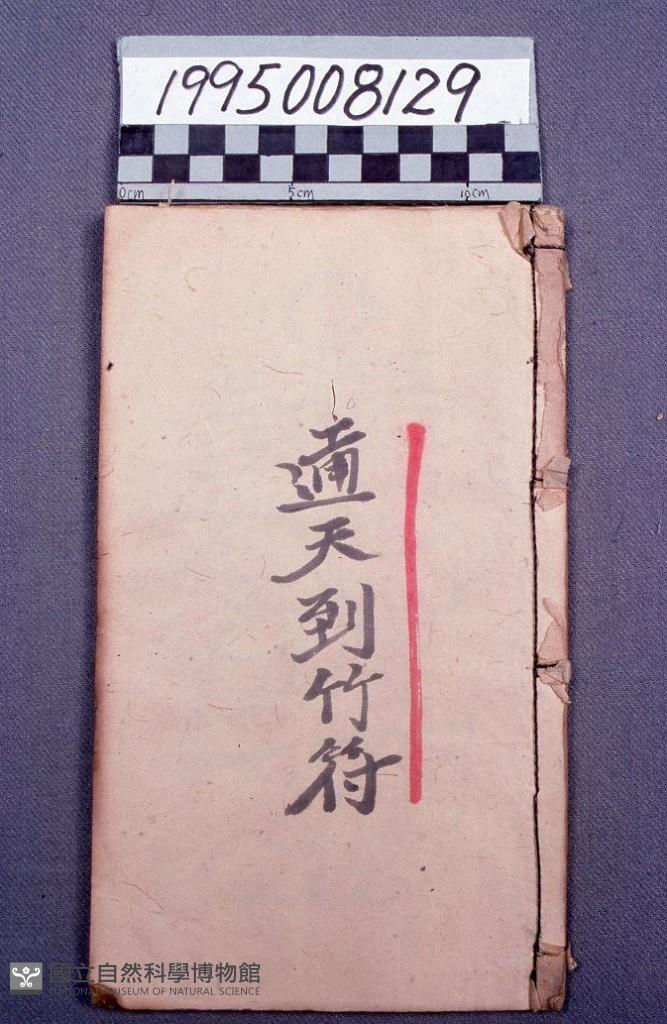 1995008129
0cm 5cm 10cm
通天到竹符
國立自然科學博物館
NATIONAL MUSEUM OF NATURAL SCIENCE